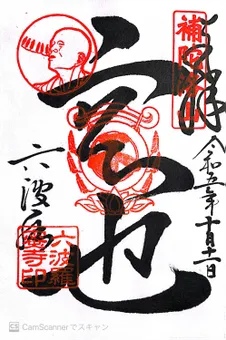 奉拝
補陀洛山
令和五年十月十一日
空也
六波羅
六波羅蜜寺印
CamScannerでスキャン